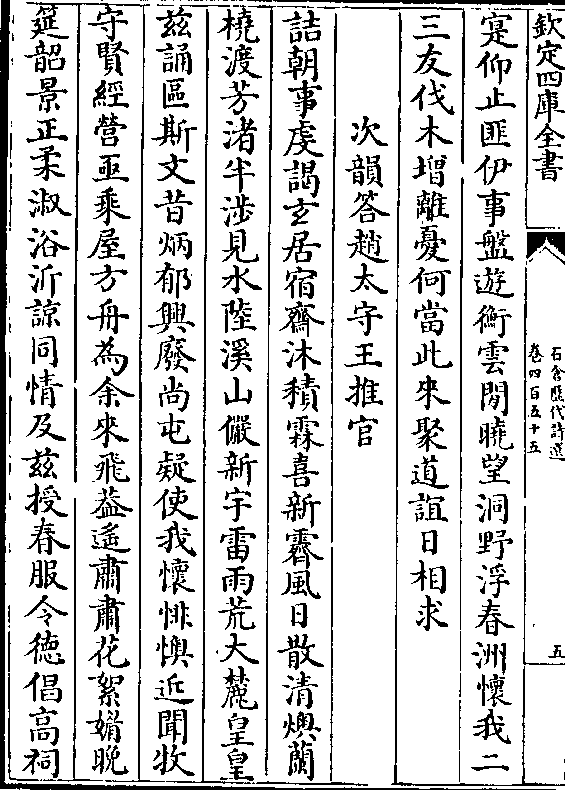 欽定四庫全書
石倉歷代詩選
卷四百五十五
五
寔仰止匪伊事盤遊衡雲閒曉望洞野浮春洲懷我二
三友伐木增離憂何當此來聚道誼日相求
次韻答趙太守王推官
詰朝事虔謁玄居宿齋沐積霖喜新霽風日散清燠蘭
橈渡芳渚半涉見水陸溪山儼新宇雷雨荒大麓皇皇
兹誦區斯文昔炳郁興廢尚屯疑使我懷悱懊近聞牧
守賢經營亟乘屋方舟為余來飛葢遙肅肅花絮媚晚
筵韶景正柔淑浴沂諒同情及兹授春服令德倡高祠